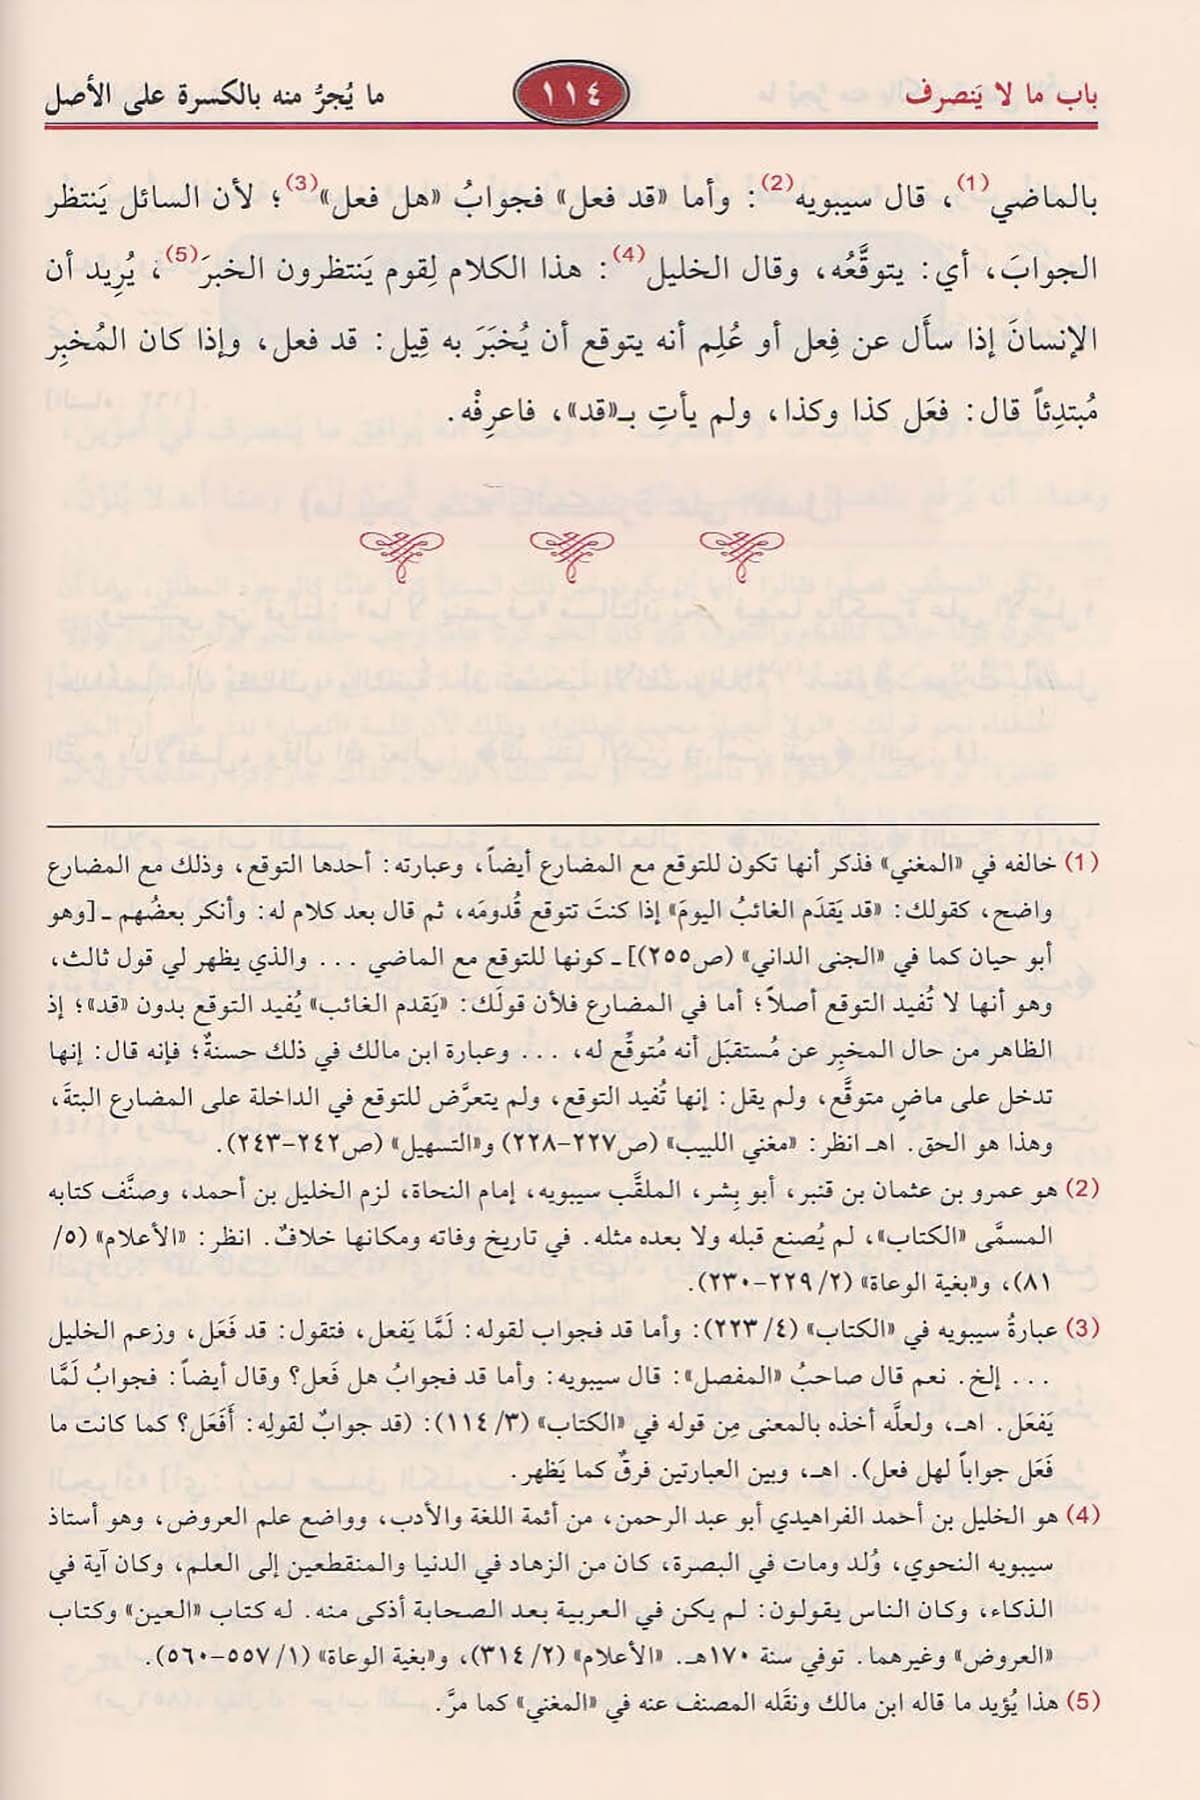 باب ما لا يَنصرف
١١٤
ما يُجرُّ منه بالكسرة على الأصل
بالماضي(1)، قال سيبويه(2): وأما «قد فعل» فجوابُ «هل فعل»(3)؛ لأن السائل يَنتظر
الجوابَ، أي: يتوقَّعُه، وقال الخليل(4): هذا الكلام لِقوم يَنتظرون الخبرَ(5)، يُرِيد أن
الإنسانَ إذا سأَل عن فِعل أو عُلِم أنه يتوقع أن يُخبَرَ به قِيل: قد فعل، وإذا كان المُخبِر
مُبتدِئاً قال: فعَل كذا وكذا، ولم يأتِ بـ«قد»، فاعرِفْه.
(1) خالفه في «المغني» فذكر أنها تكون للتوقع مع المضارع أيضاً، وعبارته: أحدها التوقع، وذلك مع المضارع
واضح، كقولك: «قد يَقدَم الغائبُ اليومَ» إذا كنتَ تتوقع قُدومَه، ثم قال بعد كلام له: وأنكر بعضُهم ـ [وهو
أبو حيان كما في «الجنى الداني» (ص٢٥٥)] ـ كونها للتوقع مع الماضي ... والذي يظهر لي قول ثالث،
وهو أنها لا تُفيد التوقع أصلاً؛ أما في المضارع فلأن قولَك: «يَقدم الغائب» يُفيد التوقع بدون «قد»؛ إذ
الظاهر من حال المخبِر عن مُستقبَل أنه مُتوقِّع له، ... وعبارة ابن مالك في ذلك حسنةٌ؛ فإنه قال: إنها
تدخل على ماضٍ متوقَّع، ولم يقل: إنها تُفيد التوقع، ولم يتعرَّض للتوقع في الداخلة على المضارع البتةَ،
وهذا هو الحق. اهـ انظر: «مغني اللبيب» (ص٢٢٧-٢٢٨) و«التسهيل» (ص٢٤٢-٢٤٣).
(2) هو عمرو بن عثمان بن قنبر، أبو بِشر، الملقَّب سيبويه، إمام النحاة، لزم الخليل بن أحمد، وصنَّف كتابه
المسمَّى «الكتاب»، لم يُصنع قبله ولا بعده مثله. في تاريخ وفاته ومكانها خلافٌ. انظر: «الأعلام» (٥/
٨١)، و«بغية الوعاة» (٢/ ٢٢٩-٢٣٠).
(3) عبارةُ سيبويه في «الكتاب» (٤/ ٢٢٣): وأما قد فجواب لقوله: لَمَّا يَفعل، فتقول: قد فَعَل، وزعم الخليل
... إلخ. نعم قال صاحبُ «المفصل»: قال سيبويه: وأما قد فجوابُ هل فَعل؟ وقال أيضاً: فجوابُ لَمَّا
يَفعَل. اهـ، ولعلَّه أخذه بالمعنى مِن قوله في «الكتاب» (٣/ ١١٤): (قد جوابٌ لقولِه: أَفَعَل؟ كما كانت ما
فَعَل جواباً لهل فعل). اهـ، وبين العبارتين فرقٌ كما يَظهر.
(4) هو الخليل بن أحمد الفراهيدي أبو عبد الرحمن، من أئمة اللغة والأدب، وواضع علم العروض، وهو أستاذ
سيبويه النحوي، وُلد ومات في البصرة، كان من الزهاد في الدنيا والمنقطعين إلى العلم، وكان آية في
الذكاء، وكان الناس يقولون: لم يكن في العربية بعد الصحابة أذكى منه. له كتاب «العين» وكتاب
«العروض» وغيرهما. توفي سنة ١٧٠هـ. «الأعلام» (٢/ ٣١٤)، و«بغية الوعاة» (١/ ٥٥٧-٥٦٠).
(5) هذا يُؤيد ما قاله ابن مالك ونقَله المصنف عنه في «المغني» كما مرَّ.